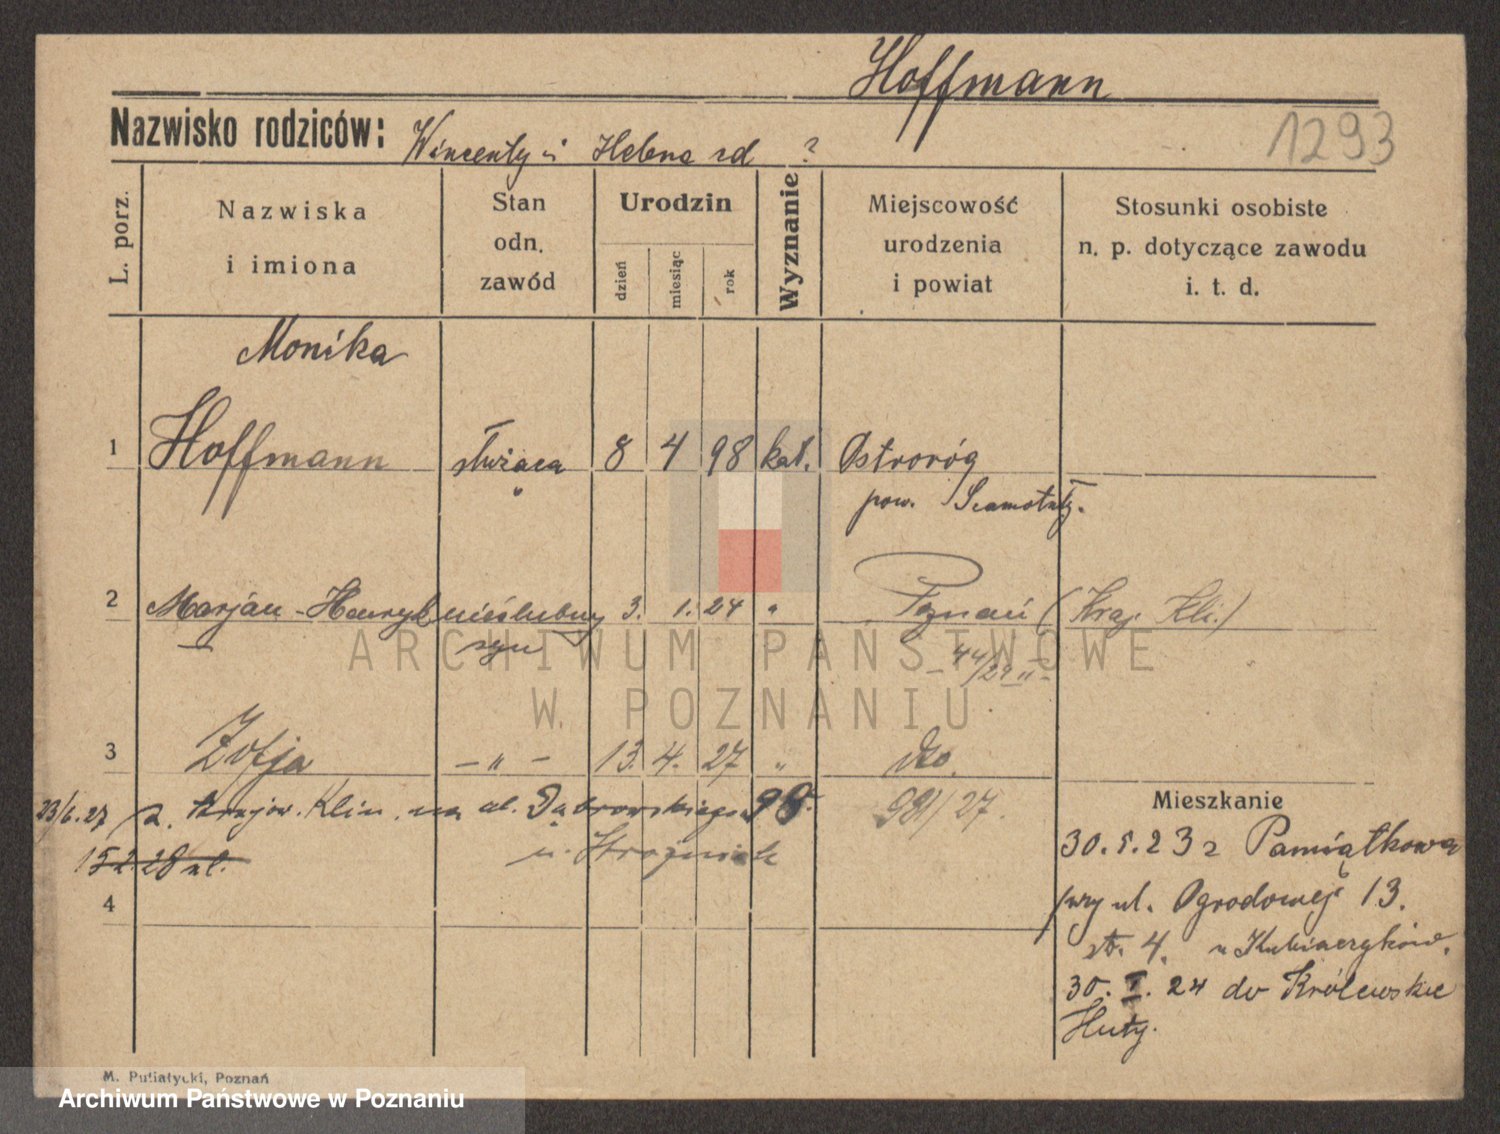 Hoffmann
Nazwisko rodziców: Wincenty i Helena zd ?
1293
L. porz.
Nazwiska i imiona
Stan odn. zawód
Urodzin
dzień miesiąc rok
Wyznanie
Miejscowość urodzenia i powiat
Stosunki osobiste n. p. dotyczące zawodu i. t. d.
Monika
1 Hoffmann służąca 8 4 98 kat. Ostroróg
pow. Szamotuły.
2 Marjan - Henryk nieślubny 3. 1. 24 " Poznań (Kraj. Kli.)
syn
44/24 II
ARCHIWUM PAŃSTWOWE
W POZNANIU
3 Zofja - " - 13. 4. 27 " dto.
23/6.27 z. Krajow. Klin. na ul. Dąbrowskiego 98. 981/27.
15.2.28 nl.
4
Mieszkanie
30. 5. 23 z Pamiątkowa
przy ul. Ogrodowej 13.
st. 4. u
30. I. 24 do Królewskie
Huty.
M. Putiatycki, Poznań
Archiwum Państwowe w Poznaniu